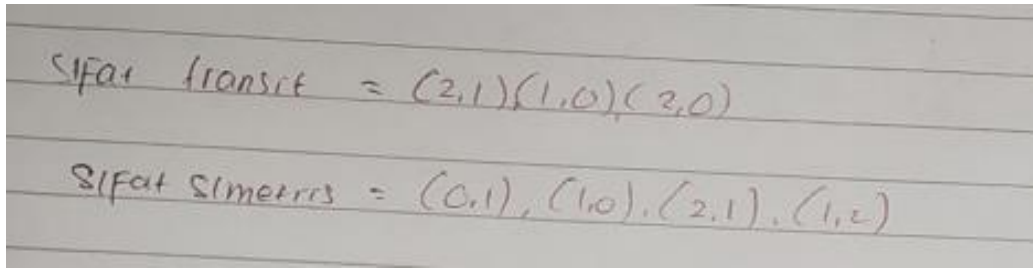 Sifat transit = (2,1)(1,0),(2,0)
Sifat simetris = (0,1), (1,0), (2,1), (1,2)